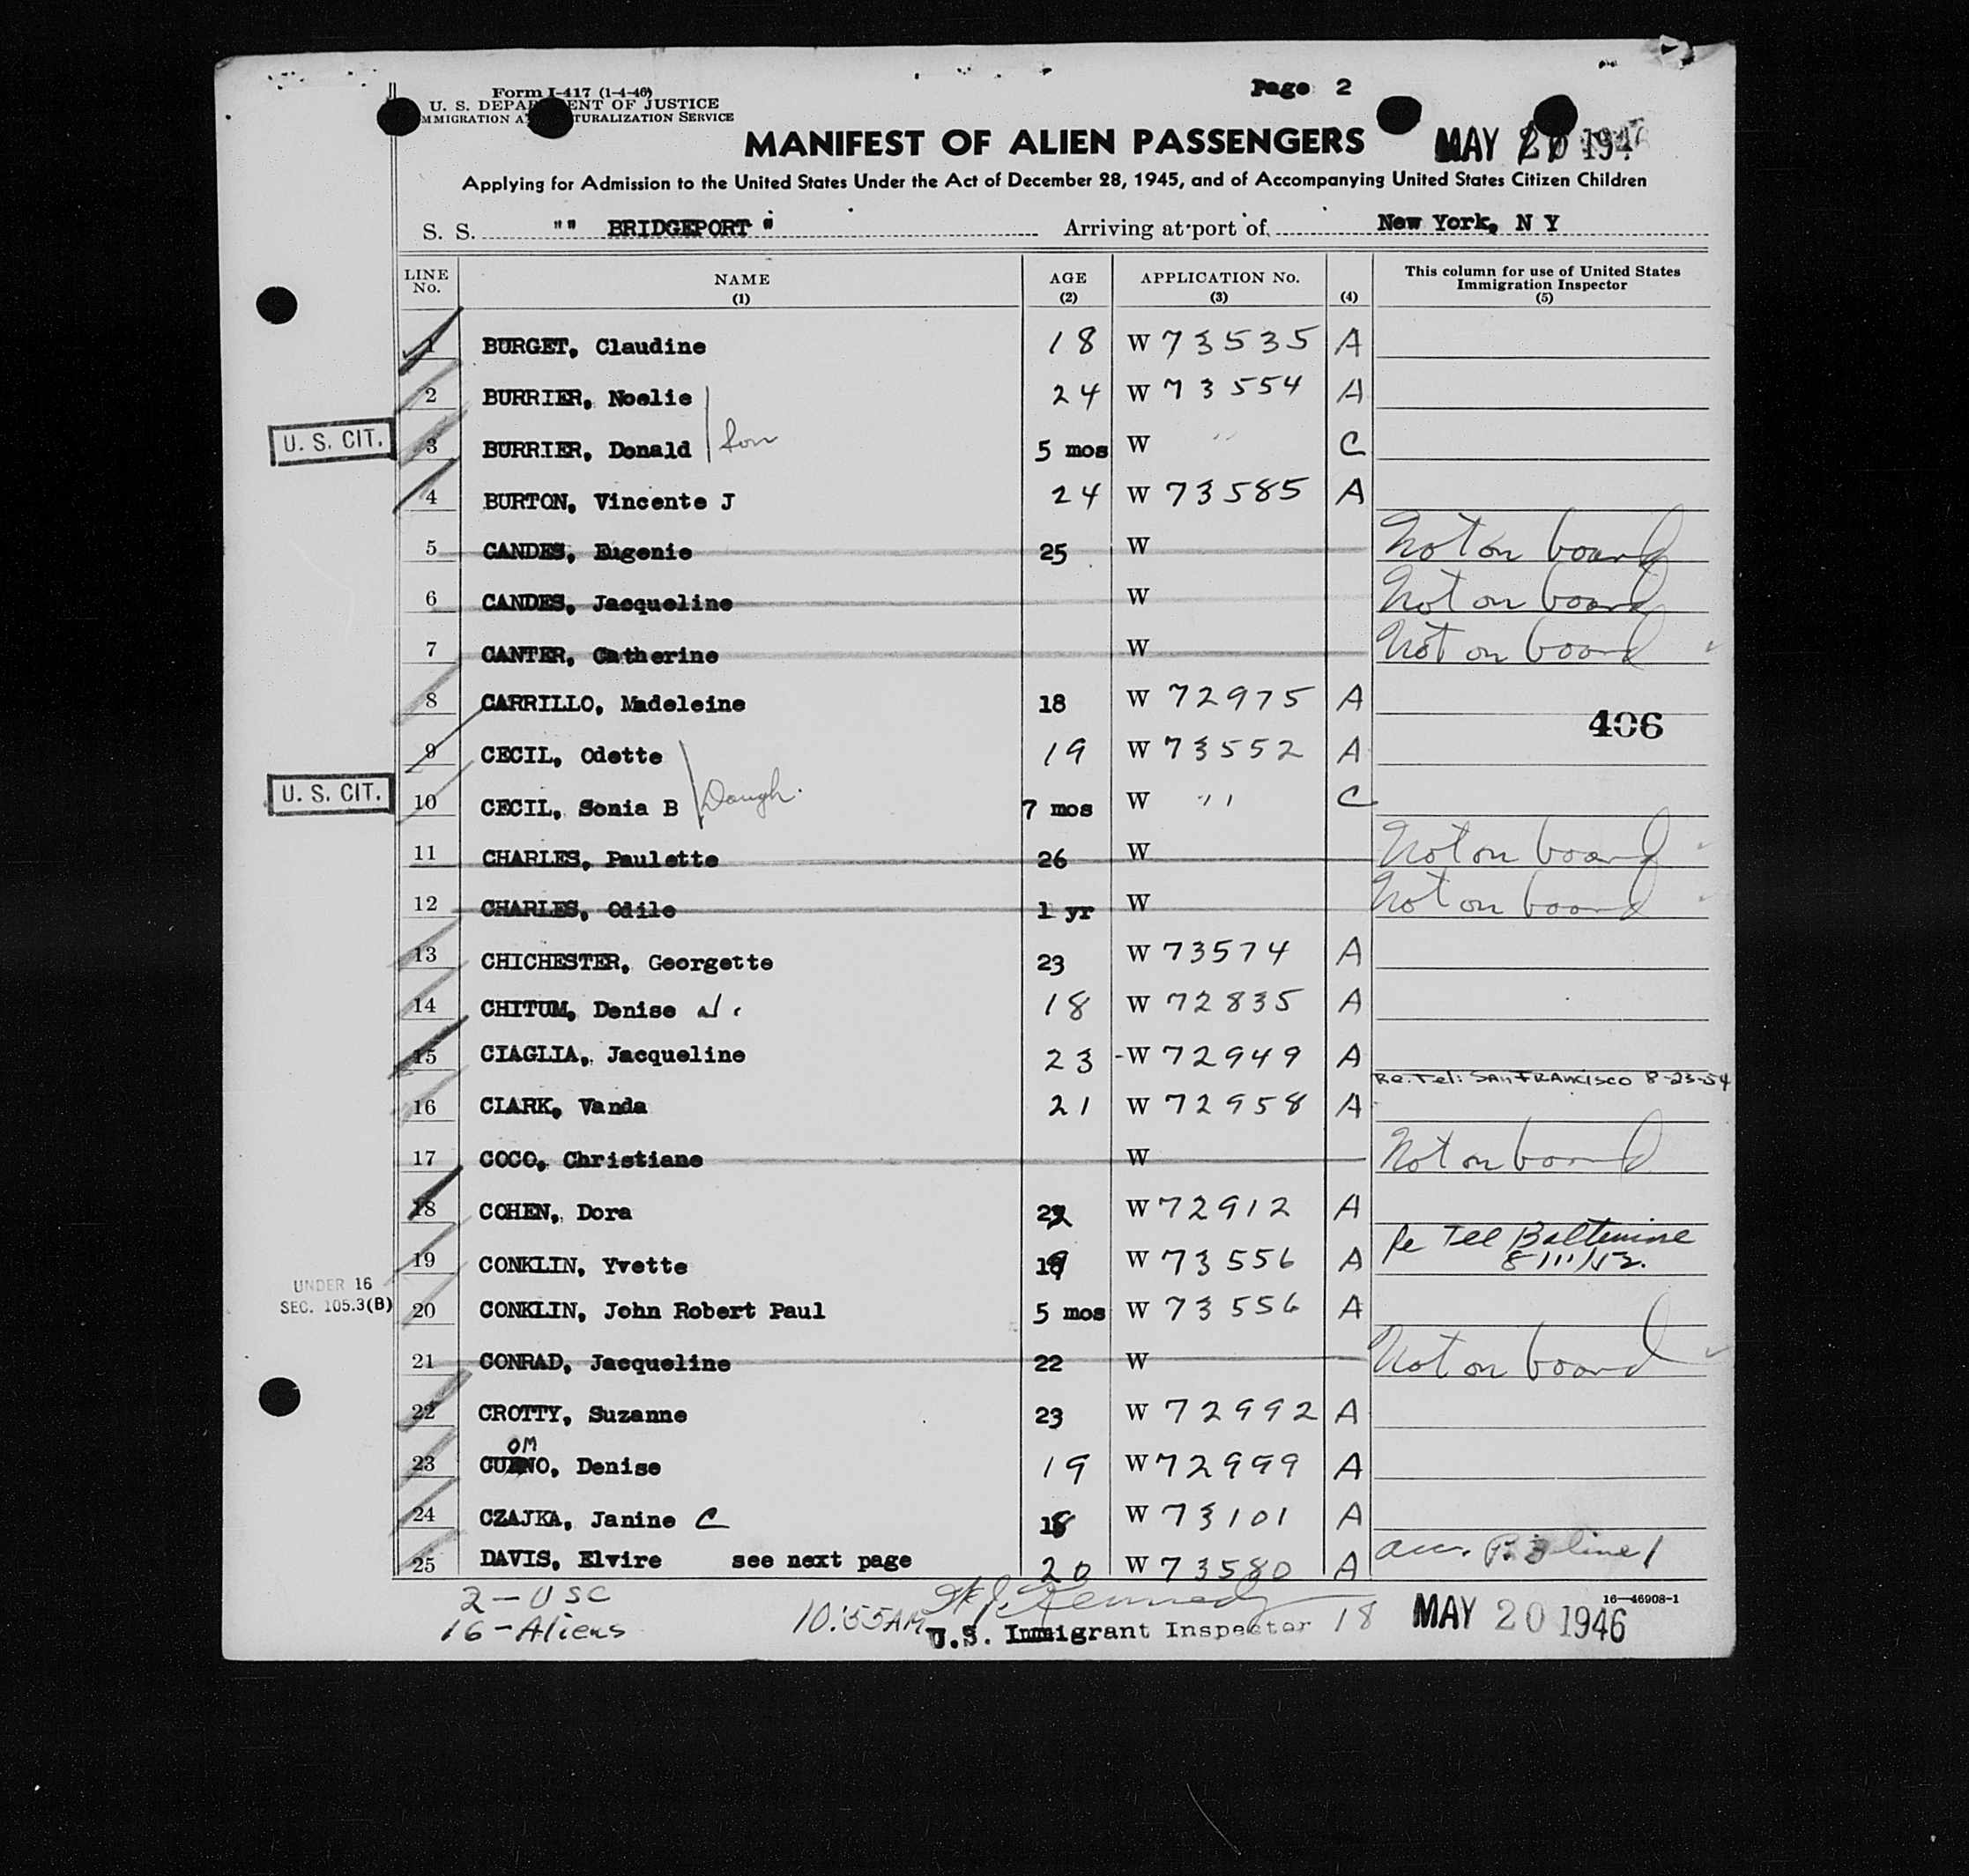 Form I-417 (1-4-46) Page 2
U. S. DEPA ENT OF JUSTICE
MMIGRATION A TURALIZATION SERVICE
MANIFEST OF ALIEN PASSENGERS MAY 20 194
Applying for Admission to the United States Under the Act of December 28, 1945, and of Accompanying United States Citizen Children
S. S. "" BRIDGEPORT " Arriving at port of New York, N Y
LINE No. NAME (1) AGE (2) APPLICATION No. (3) (4) This column for use of United States Immigration Inspector (5)
1 BURGET, Claudine 18 W 73535 A
2 BURRIER, Noelie 24 W 73554 A
U. S. CIT. 3 BURRIER, Donald Son 5 mos W " C
4 BURTON, Vincente J 24 W 73585 A
5 CANDES, Eugenie 25 W Not on board
6 CANDES, Jacqueline W Not on board
7 CANTER, Catherine W Not on board
8 CARRILLO, Madeleine 18 W 72975 A
406
9 CECIL, Odette 19 W 73552 A
U. S. CIT. 10 CECIL, Sonia B Daugh. 7 mos W " C
11 CHARLES, Paulette 26 W Not on board
12 CHARLES, Odile 1 yr W Not on board
13 CHICHESTER, Georgette 23 W 73574 A
14 CHITUM, Denise N. 18 W 72835 A
15 CIAGLIA, Jacqueline 23 -W 72949 A
Re. Tel: SAN FRANCISCO 8-23-54
16 CLARK, Vanda 21 W 72958 A
17 COCO, Christiane W Not on board
18 COHEN, Dora 22 W 72912 A
19 CONKLIN, Yvette 19 W 73556 A Re Tel Baltimore 8/11/52.
UNDER 16
SEC. 105.3(B) 20 CONKLIN, John Robert Paul 5 mos W 73556 A
21 CONRAD, Jacqueline 22 W Not on board
22 CROTTY, Suzanne 23 W 72992 A
OM
23 CU NO, Denise 19 W 72999 A
24 CZAJKA, Janine C 18 W 73101 A
25 DAVIS, Elvire see next page 20 W 73580 A acc. P. 3 line 1
2-USC
16-Aliens 10:55AM Kennedy 18 MAY 20 1946
U.S. Immigrant Inspector
16—46908-1